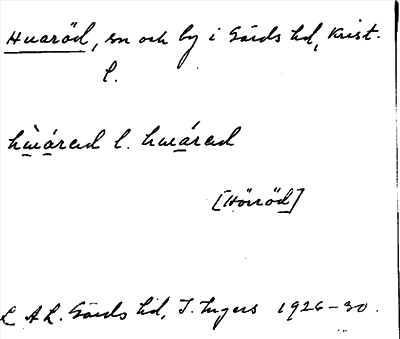 Huaröd, sn och by i Gärds hd, Krist.
l.
hẁáräd l. hwáräd
[Hörröd]
L A L. Gärds hd, I. Ingers 1926-30.